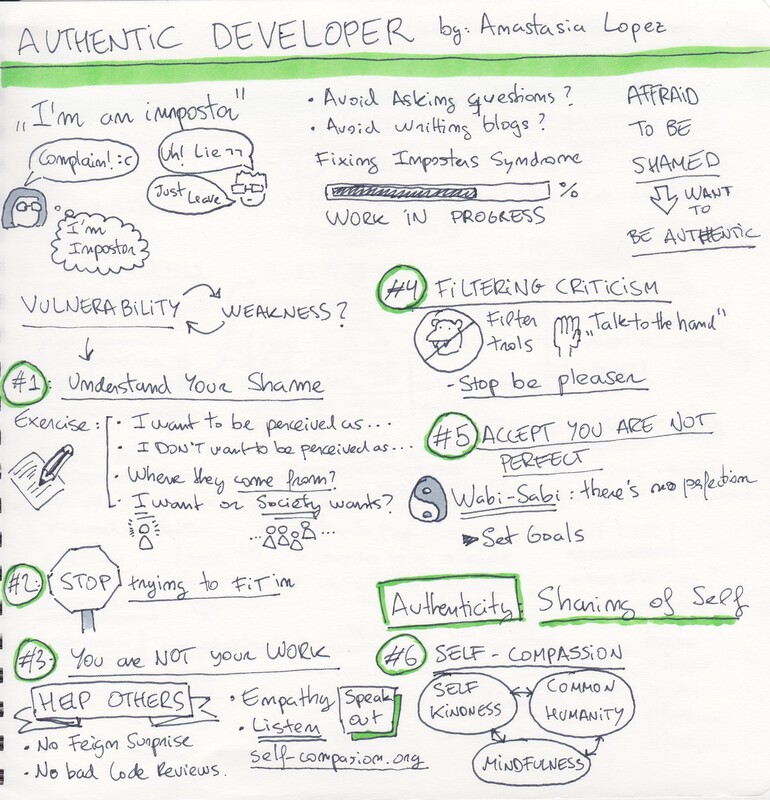 AUTHENTIC DEVELOPER by: Anastasia Lopez
„I'm an impostor"
Complain! :c
Uh! Lie ¬¬
Just Leave
I'm
Impostor
• Avoid Asking questions?
• Avoid writting blogs?
Fixing Imposters Syndrome
%
WORK IN PROGRESS
AFFRAID
TO BE
SHAMED
WANT
TO
BE AUTHENTIC
VULNERABILITY WEAKNESS?
#1: Understand Your Shame
Exercise:
• I want to be perceived as...
• I DON'T want to be perceived as...
• Where they come from?
• I want or Society wants?
#2: STOP trying to FiT in
#3: You are NOT your WORK
HELP OTHERS
• No Feign Surprise
• No bad Code Reviews.
• Empathy
• Listen
Speak
out
self-compasion.org
#4 FILTERING CRITICISM
Filter
trols
„Talk to the hand"
- Stop be pleaser
#5 ACCEPT YOU ARE NOT
PERFECT
Wabi-Sabi: there's no perfection
Set Goals
Authenticity: Sharing of Self
#6 SELF-COMPASSION
SELF
KINDNESS
COMMON
HUMANITY
MINDFULNESS